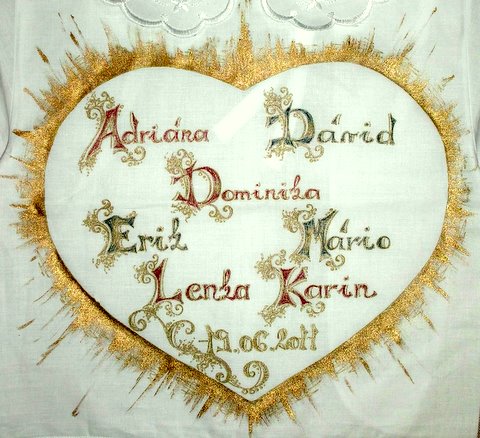 Adriána Dávid
Dominika
Erik Mário
Lenka Karin
19.06.2011